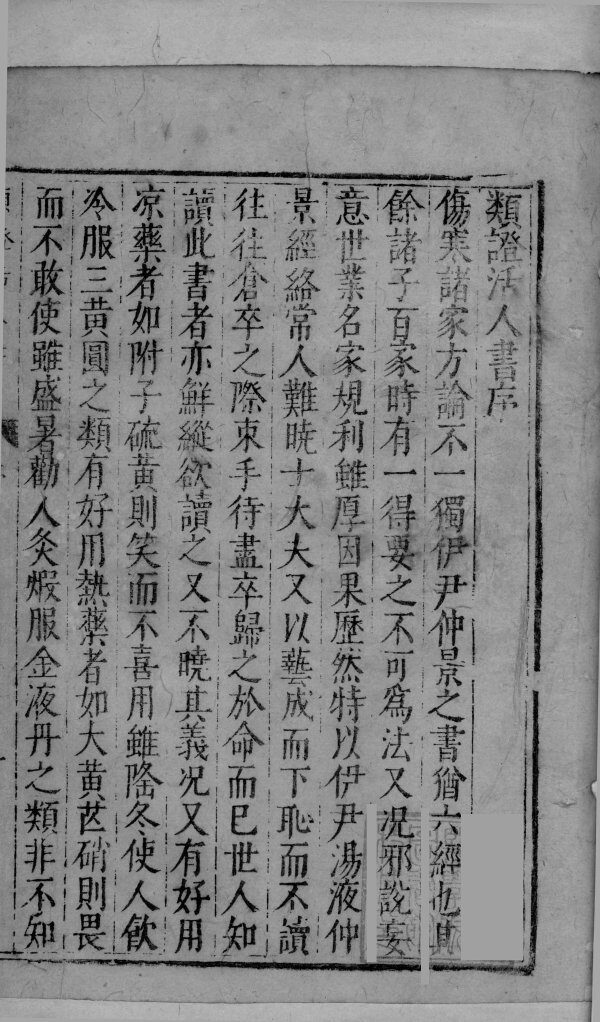 類證活人書序
傷寒諸家方論不一獨伊尹仲景之書猶六經也其
餘諸子百家時有一得要之不可為法又況邪說妄
意世業名家規利雖厚因果歷然特以伊尹湯液仲
景經絡常人難曉士大夫又以藝成而下恥而不讀
往往倉卒之際束手待盡卒歸之於命而已世人知
讀此書者亦鮮縱欲讀之又不曉其義況又有好用
凉藥者如附子硫黃則笑而不喜用雖隆冬使人飲
冷服三黃圓之類有好用熱藥者如大黃芒硝則畏
而不敢使雖盛暑勸人灸煆服金液丹之類非不知